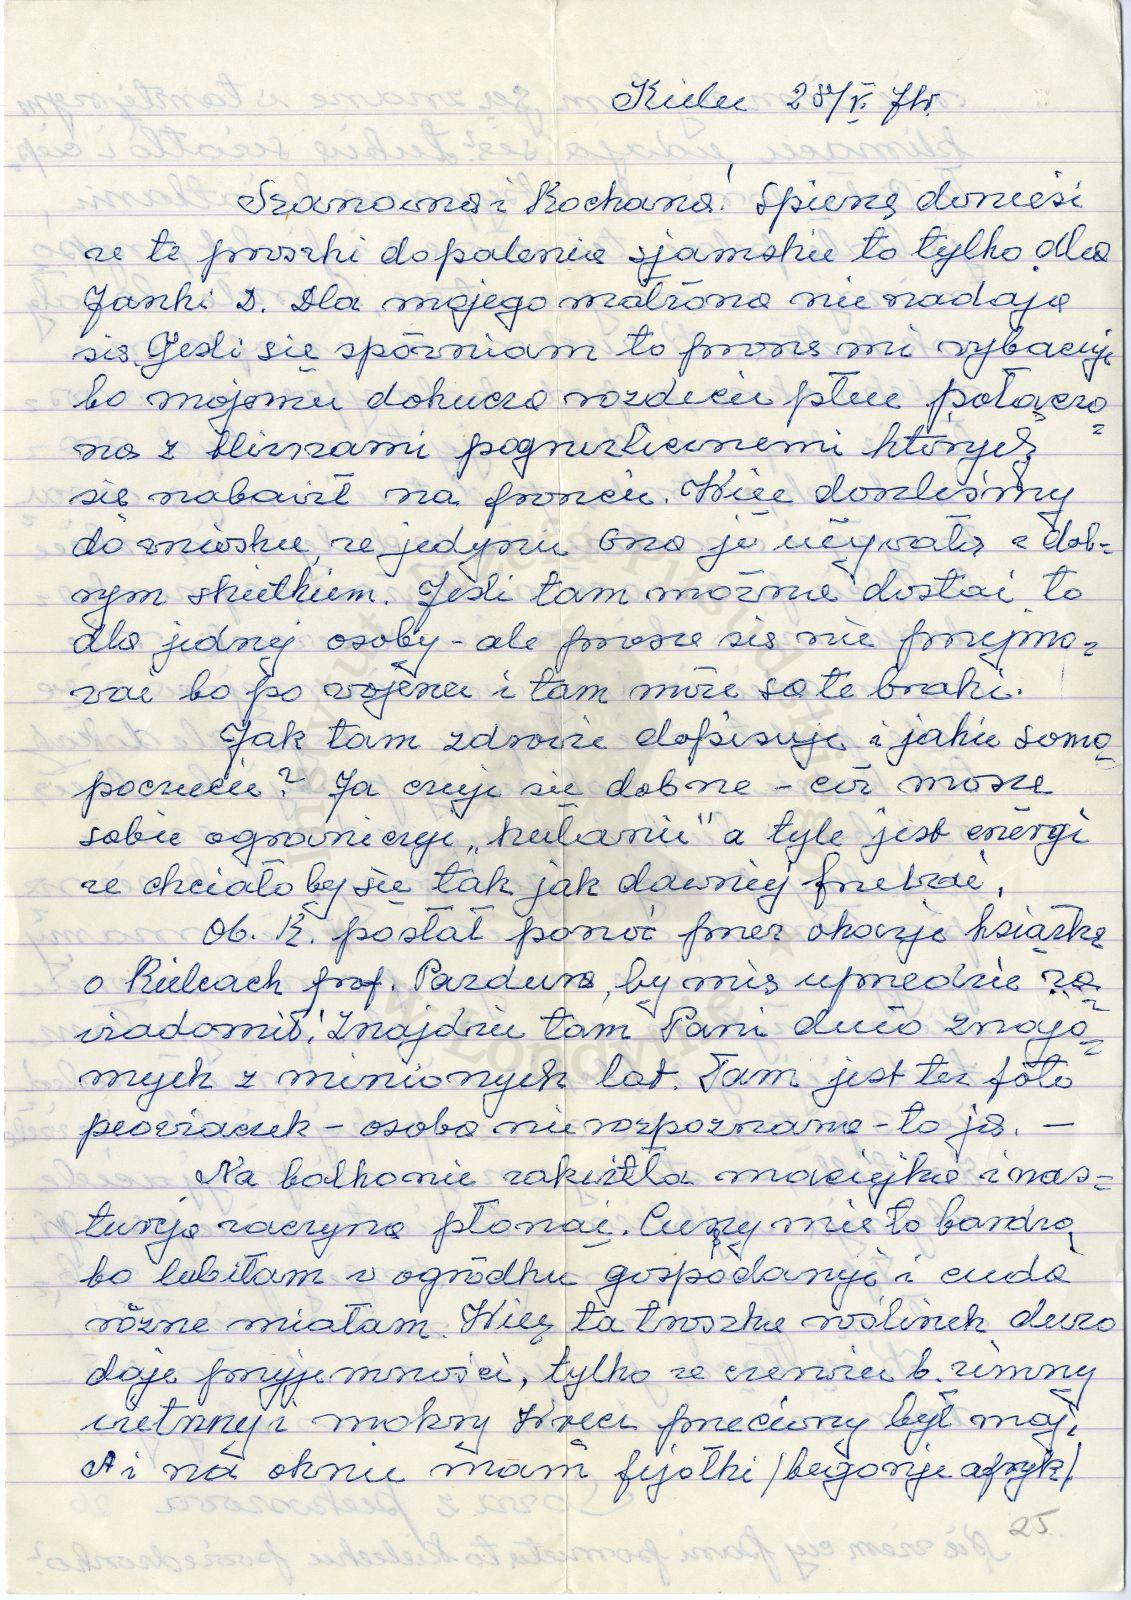 Kielce 28/V. 71r.
Szanowna i Kochana! Spieszę donieść
że te proszki do palenia sjamskie to tylko dla
Janki D. Dla mojego małżona nie nadają
się. Jeśli się spóźniam to proszę mi wybaczyć
bo mojemu dokucza rozdęcie płuc połączo=
na z bliznami pogruźlicznemi których
się nabawił na froncie. Więc doszliśmy
do wniosku, że jedynie ona je używała z dob=
rym skutkiem. Jeśli tam można dostać to
dla jednej osoby - ale proszę się nie przejmo=
wać bo po wojence i tam może są te braki.
Jak tam zdrowie dopisuje i jakie samo=
poczucie? Ja czuję się dobrze - cóż muszę
sobie ograniczyć „hulanie" a tyle jest energi
że chciałoby się tak jak dawniej
Ob. K. posłał ponoć przez okazję książkę
o Kielcach prof. Pazdura, by mię uprzedzić za=
wiadomić! Znajdzie tam Pani dużo znajo=
mych z minionych lat. Tam jest też foto
peowiaczek - osoba nierozpoznana - to ja. —
Na balkonie zakwitła maciejka i nas=
turcja zaczyna płonąć. Cieszy mię to bardzo
bo lubiłam w ogródku gospodarzyć i cuda
różne miałam. Więc ta troszkę roślinek dużo
daje przyjemności, tylko że czerwiec b. zimny
wietrzny i mokry Wręcz przeciwny był maj.
A i na oknie mam fijołki /begonje afryk/
25